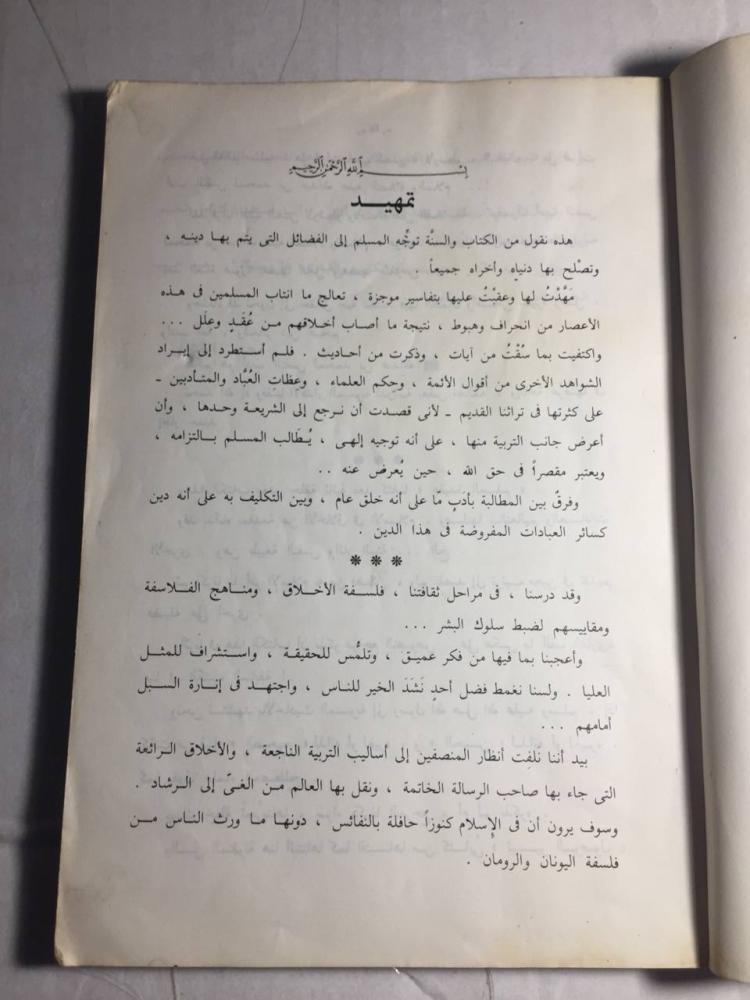 بسم الله الرحمن الرحيم
تمهيد
هذه نقول من الكتاب والسنَّة توجِّه المسلم إلى الفضائل التى يتم بها دينه ،
وتصْلح بها دنياه وأخراه جميعاً .
مَهَّدْتُ لها وعقبْتُ عليها بتفاسير موجزة ، تعالج ما انتاب المسلمين فى هذه
الأعصار من انحراف وهبوط ، نتيجة ما أصاب أخلاقهم من عُقَدٍ وعِلَل ...
واكتفيت بما سُقْتُ من آيات ، وذكرت من أحاديث . فلم أستطرد إلى إيراد
الشواهد الأخرى من أقوال الأئمة ، وحِكم العلماء ، وعِظاتِ العُبَّاد والمتأدبين ـ
على كثرتها فى تراثنا القديم ـ لأنى قصدت أن نرجع إلى الشريعة وحدها ، وأن
أعرض جانب التربية منها ، على أنه توجيه إلهى ، يُطَالب المسلم بالتزامه ،
ويعتبر مقصراً فى حق الله ، حين يُعرض عنه ..
وفرقٌ بين المطالبة بأدبٍ مّا على أنه خلق عام ، وبين التكليف به على أنه دين
كسائر العبادات المفروضة فى هذا الدين .
* * *
وقد درسنا ، فى مراحل ثقافتنا ، فلسفة الأخلاق ، ومناهج الفلاسفة
ومقاييسهم لضبط سلوك البشر ...
وأعجبنا بما فيها من فكر عميق ، وتلمُّس للحقيقة ، واستشراف للمثل
العليا . ولسنا نغمط فضل أحدٍ نَشَدَ الخير للناس ، واجتهد فى إنارة السبل
أمامهم ...
بيد أننا نلفت أنظار المنصفين إلى أساليب التربية الناجعة ، والأخلاق الرائعة
التى جاء بها صاحب الرسالة الخاتمة ، ونقل بها العالم من الغىّ إلى الرشاد .
وسوف يرون أن فى الإسلام كنوزاً حافلة بالنفائس ، دونها ما ورث الناس من
فلسفة اليونان والرومان .